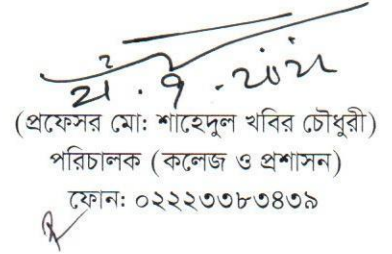 (প্রফেসর মো: শাহেদুল খবির চৌধুরী)
পরিচালক (কলেজ ও প্রশাসন)
ফোন: ০২২২৩৩৮৩৪৩৯